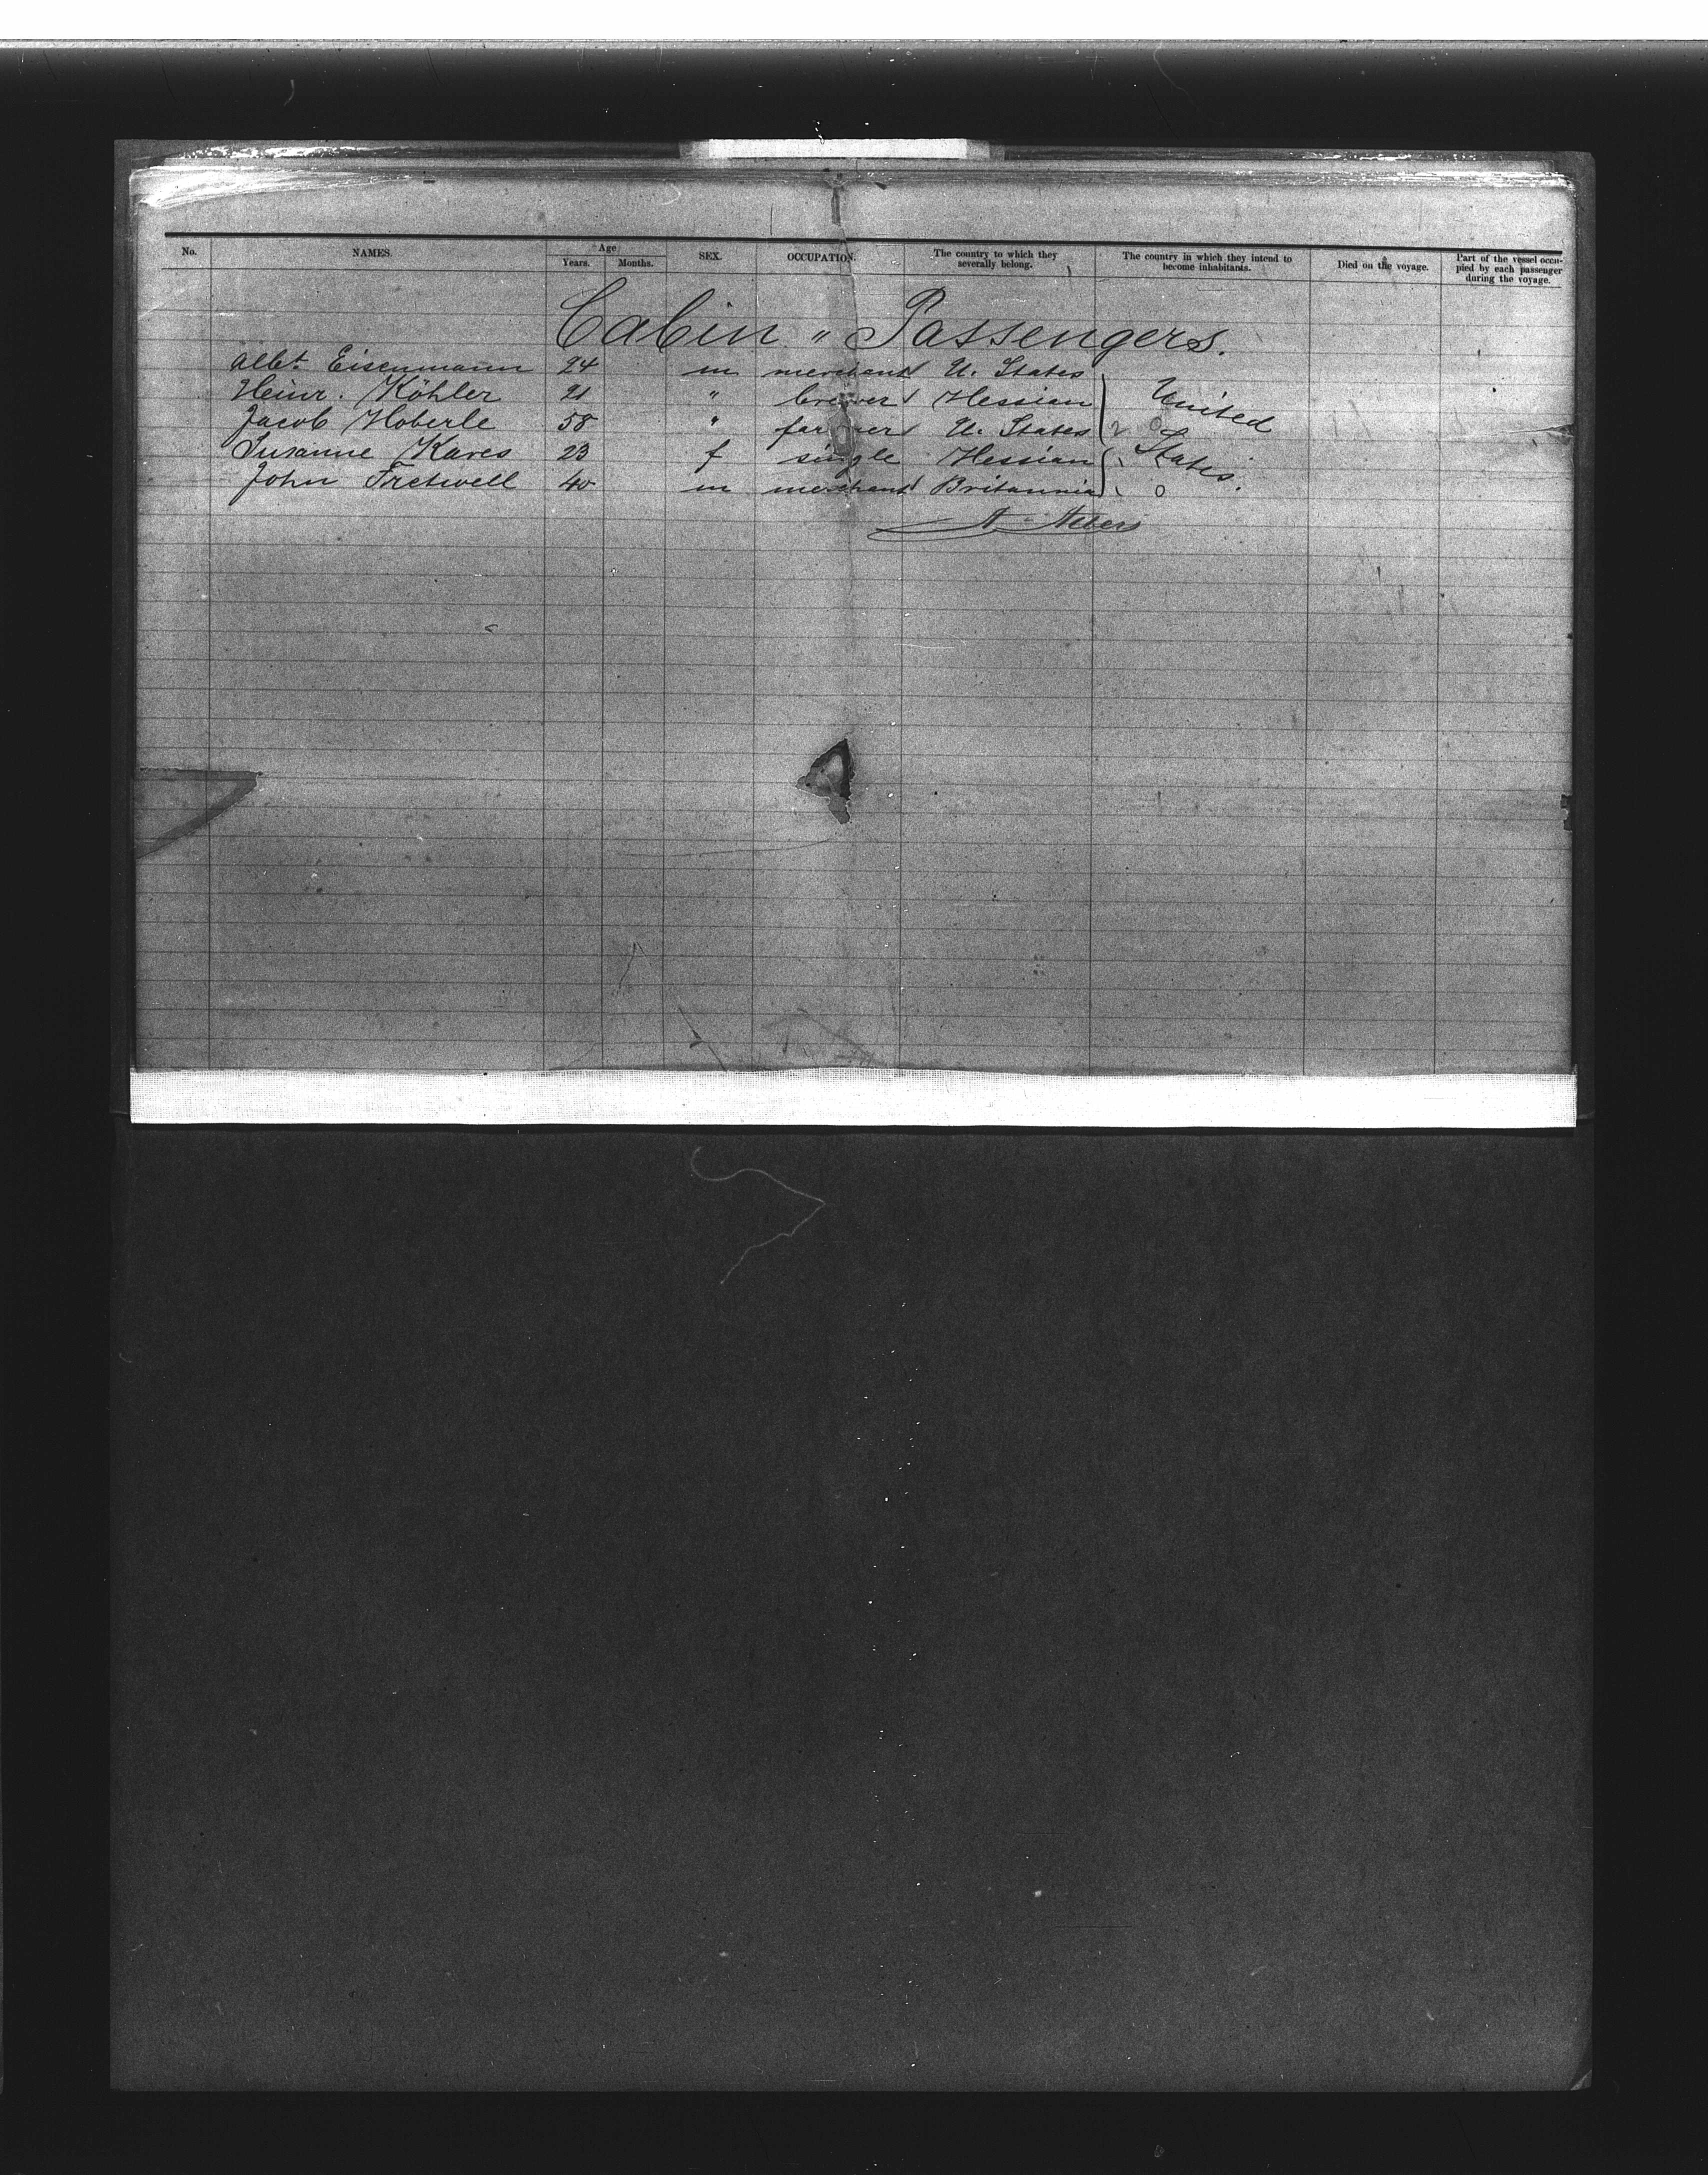 No. NAMES. Age SEX. OCCUPATION. The country to which they severally belong. The country in which they intend to become inhabitants. Died on the voyage. Part of the vessel occupied by each passenger during the voyage.
Years. Months.
Cabin " Passengers.
Albt. Eisenmann 24 m merchant U. States
Heinr. Köhler 21 " brewer Hessian United
Jacob Hoberle 58 " farmer U. States
Susanne Kares 23 f single Hessian States.
John Fretwell 40 m merchant Britannia